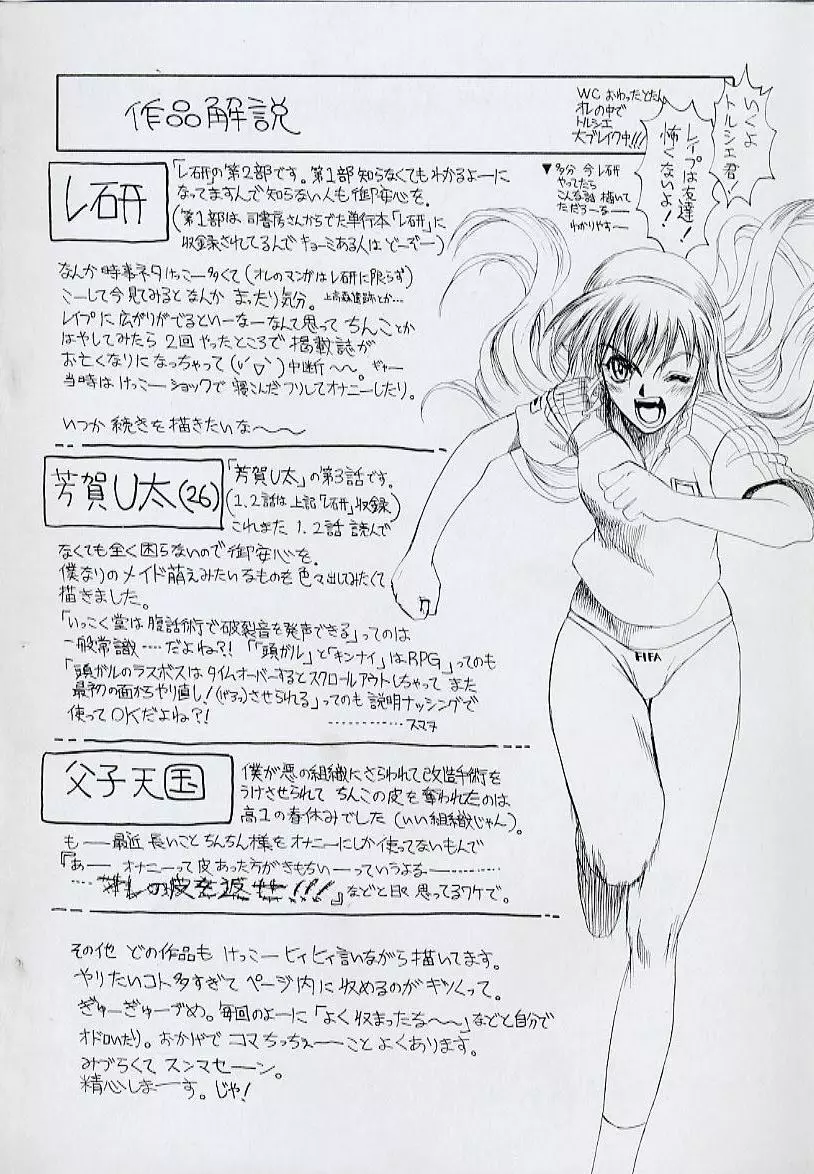 作品解説
WC おわったとたん
オレの中で
トルシエ
大ブレイク中!!!
いくよ
トルシエ君!
レイプは友達!
怖くないよ!
▼多分 今 レ研
やってたら
こんな話 描いて
ただろーなー
わかりやすー
レ研
「レ研」の第2部です。第1部知らなくてもわかるよーに
なってますんで知らない人も御安心を。
(第1部は 司書房さんからでた単行本「レ研」に
収録されてるんで キョーミある人は どーぞー)
なんか 時事ネタ けっこー多くて (オレのマンガは レ研に限らず)
こーして今見てみると なんか まったり気分。上高森遺跡とか…
レイプに広がりがでるといーなーなんて思って ちんことか
はやしてみたら 2回 やったところで 掲載誌が
お亡くなりになっちゃって 中断〜〜。ギャー
当時は けっこー ショックで 寝こんだフリしてオナニーしたり。
いつか 続きを 描きたいな〜〜〜
芳賀U太(26)
「芳賀U太」の第3話です。
(1.2話は 上記「レ研」収録)
これまた 1.2話 読んで
なくても全く困らないので御安心を。
僕なりの メイド萌えみたいなものを 色々出してみたくて
描きました。
「いっこく堂は 腹話術で破裂音を発声できる」ってのは
一般常識……だよね?! 「「頭ガル」と「キンナイ」は RPG」ってのも
「頭ガルのラスボスは タイムオーバーすると スクロールアウトしちゃって また
最初の面からやり直し!させられる」ってのも 説明ナッシングで
使って OKだよね?!
父子天国
僕が悪の組織にさらわれて 改造手術を
うけさせられて ちんこの皮を奪われたのは
高1の春休みでした (いい組織じゃん)。
も――最近 長いこと ちんちん様を オナニーにしか使ってないもんで
『あ― オナニーって皮あった方がきもちいーっていうよな――…
…オレの皮を返せ!!!』などと 思ってるワケで。
その他 どの作品も けっこー ヒィヒィ言いながら 描いてます。
やりたいコト 多すぎて ページ内に 収めるのが キツくって。
ぎゅーぎゅーづめ。毎回のよーに「よく収まったな〜〜」などと自分で
オドロいたり。おかげで コマちっちぇ――こと よくあります。
みづらくて スンマセーン。
精心しまーす。じゃ!
FIFA